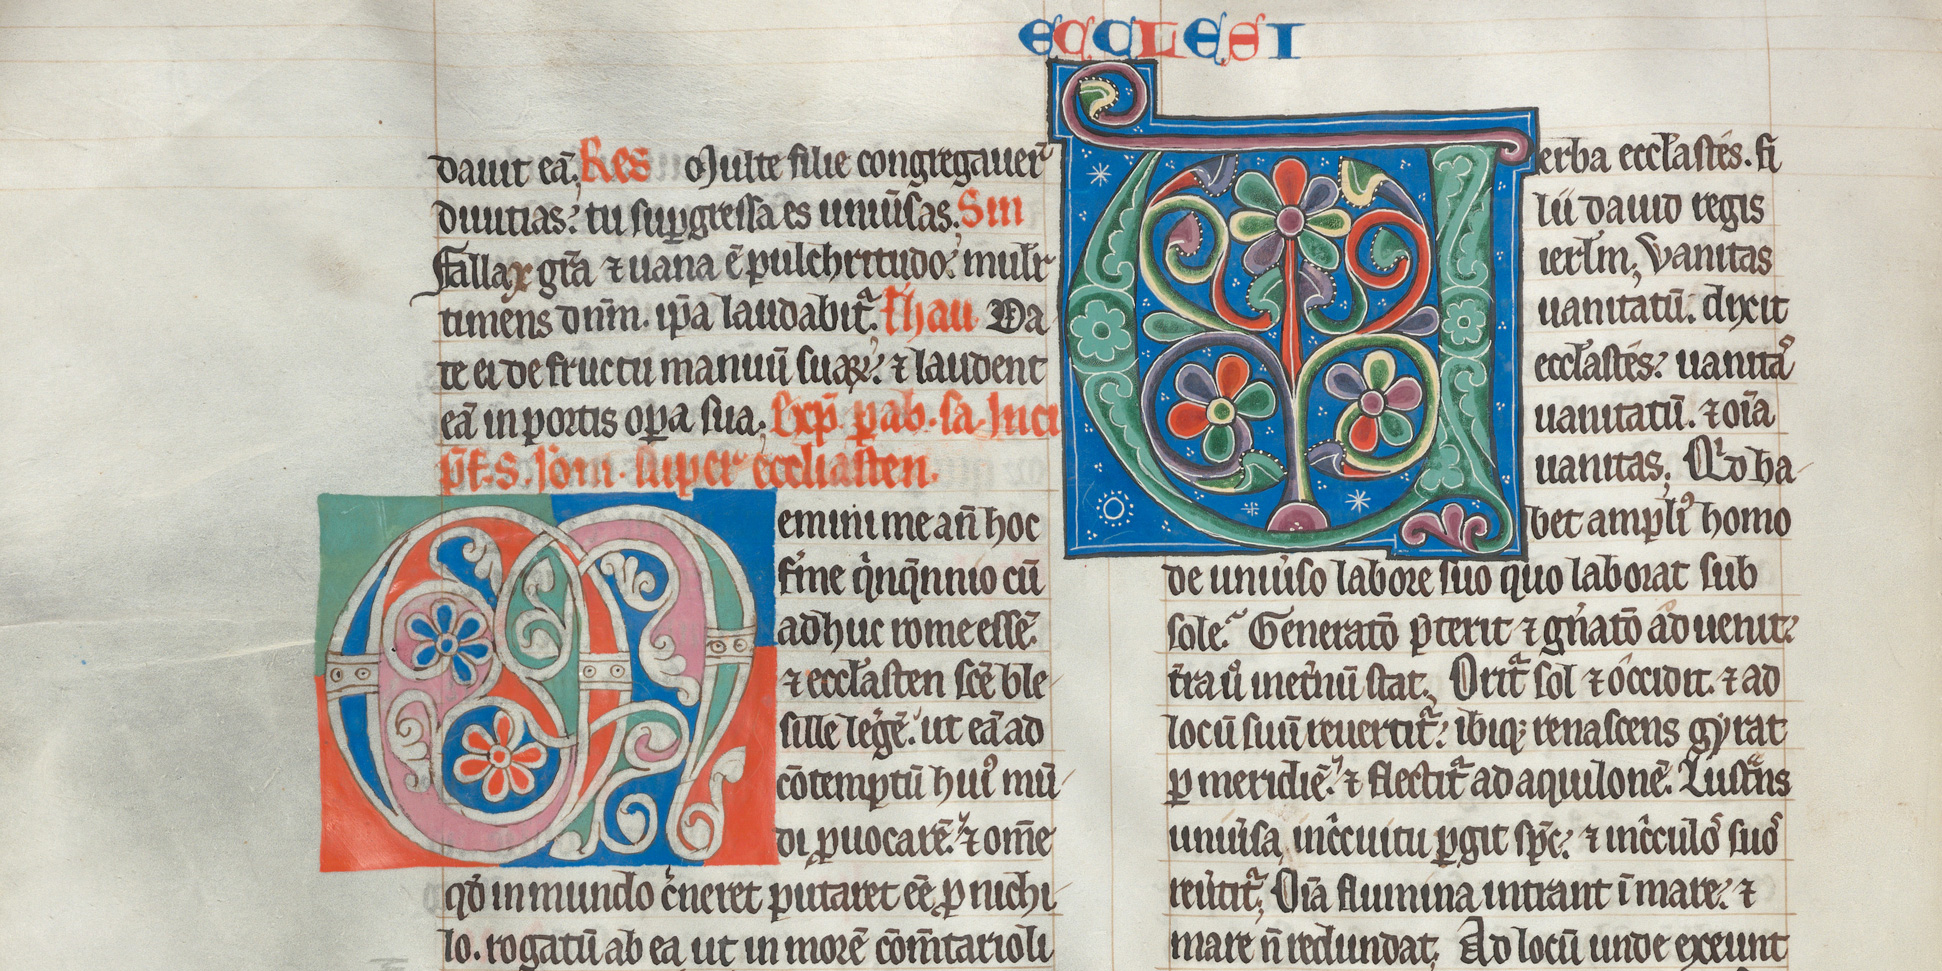 ECCLESI
dauit eā. Res Multe filie congregauer̄t
diuitias: tu suꝑgressa es uniūsas. Sin
Fallax gr̄a ⁊ uana ē pulchritudo: mulr̄
timens dn̄m. ip̄a laudabit᷑. Thau Da
te ei de fructu manuū suaꝝ: ⁊ laudent
eā in portis oꝑa sua. Exp̄. ꝑab. sa. Inci
p̄f. S. Iom. super eccliasten.
Memini me an̄ hoc
ferme q̄nq̄nnio cū
adhuc rome essē:
⁊ eccl̄asten sc̄ē ble
sille legē: ut eā ad
cōtemptū huiꝰ mū
di ꝓuocarē: ⁊ om̄e
qd̄ in mundo c̄neret putaret eē ꝓ nichi
lo. rogatū ab ea ut in morē cōm̄tarioli
Verba eccl̄astes. fi
lii dauid regis
ierl̄m. Vanitas
uanitatū. dixit
eccl̄astes: uanitaꝰ
uanitatū. ⁊ oīa
uanitas. Qd̄ ha
bet ampliꝰ homo
de uniūso labore suo quo laborat sub
sole: Generatō p̄terit ⁊ gn̄atō aduenit:
t̄ra ū inet̄nū stat. Orit᷑ sol ⁊ occidit. ⁊ ad
locū suū reuertit᷑: ibiqꝫ renascens gyrat
ꝑ meridiē: ⁊ flectit᷑ ad aquilonē. Lust᷑ns
uniūsa, incc̄uitu ꝑgit sp̄c: ⁊ incc̄ulos suos
reūtit᷑. Oīa flumina intrant ī mare: ⁊
mare n̄ redundat. Ad locū unde exeunt